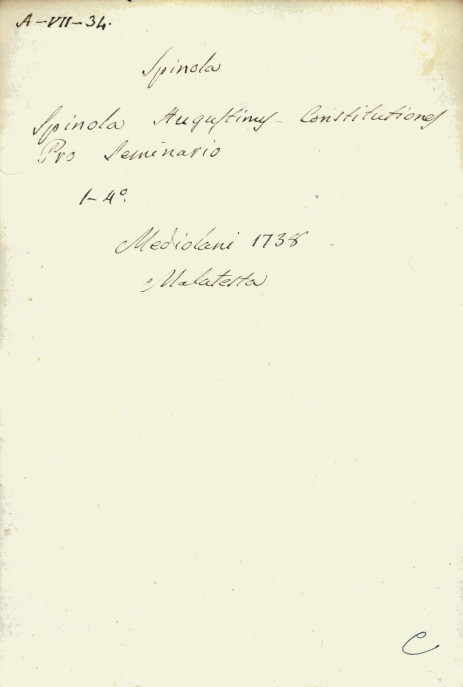 A-VII-34.
Spinola
Spinola Augustinus Constitutiones
Pro Seminario
1-4º.
Mediolani 1738
Malatesta
C